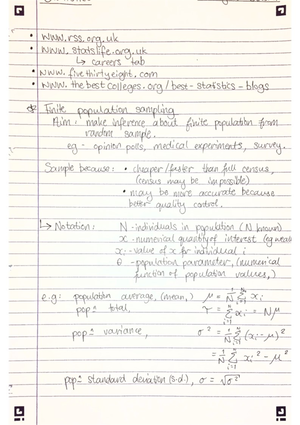 • www.rss.org.uk
• www.statslife.org.uk
↳ careers tab
• www.fivethirtyeight.com
• www.thebestcolleges.org/best-statistics-blogs
Finite population sampling
Aim: make inference about finite population from
random sample.
eg: opinion polls, medical experiments, survey.
Sample because: • cheaper/faster than full census,
(census may be impossible)
• may be more accurate because
better quality control.
↳ Notation: N - individuals in population (N known)
x - numerical quantity of interest (eg
xᵢ - value of x for individual i
θ - population parameter, (numerical
function of population values,)
e.g: population average, (mean,) μ = 1/N Σᵢ₌₁ᴺ xᵢ
popⁿ total, τ = Σᵢ₌₁ᴺ xᵢ = Nμ
popⁿ variance, σ² = 1/N Σᵢ₌₁ᴺ (xᵢ - μ)²
= 1/N Σᵢ₌₁ᴺ xᵢ² - μ²
popⁿ standard deviation (s.d.), σ = √σ²